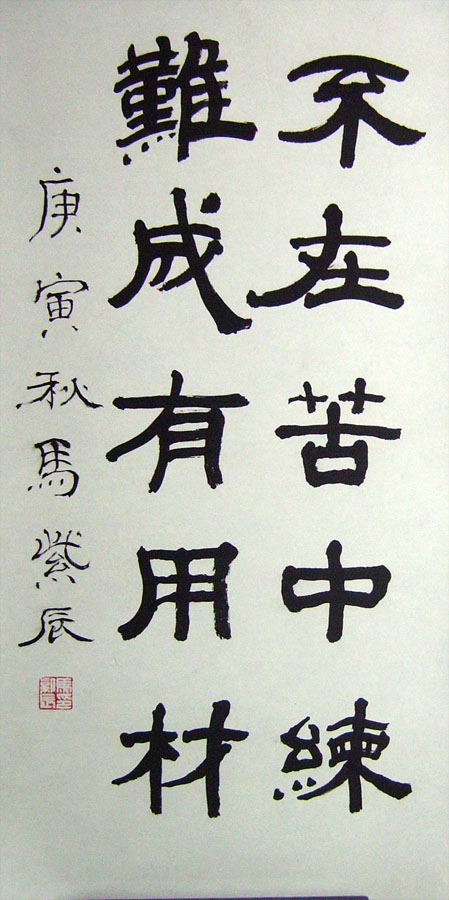 不在苦中練
難成有用材
庚寅秋馬紫辰